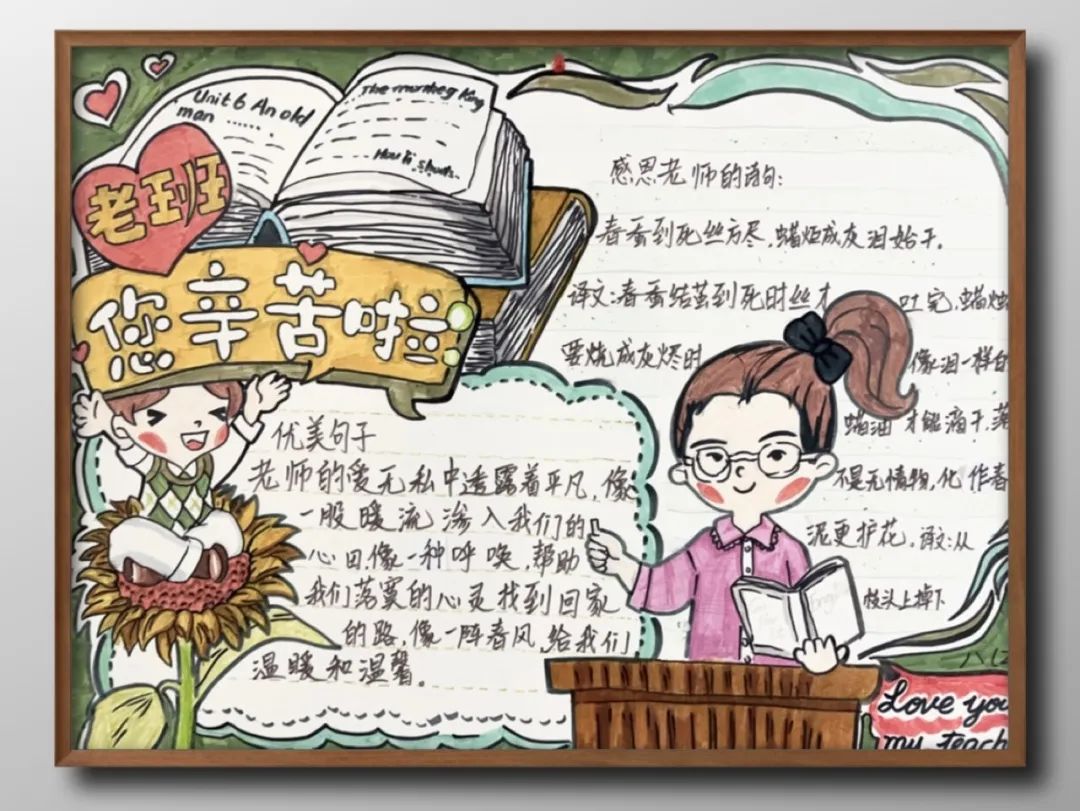 Unit 6 An old
man ......
The monkey King
老班
您辛苦啦
优美句子
老师的爱无私中透露着平凡,像
一股暖流渗入我们的
心田,像一种呼唤,帮助
我们落寞的心灵找到回家
的路,像一阵春风,给我们
温暖和温馨。
感恩老师的诗句:
春蚕到死丝方尽,蜡炬成灰泪始干。
译文:春蚕结茧到死时丝才吐完,蜡烛
要烧成灰烬时像泪一样的
蜡油才能滴干,落
不是无情物,化作春
泥更护花。译文:从
枝头上掉下
Love you
my teach